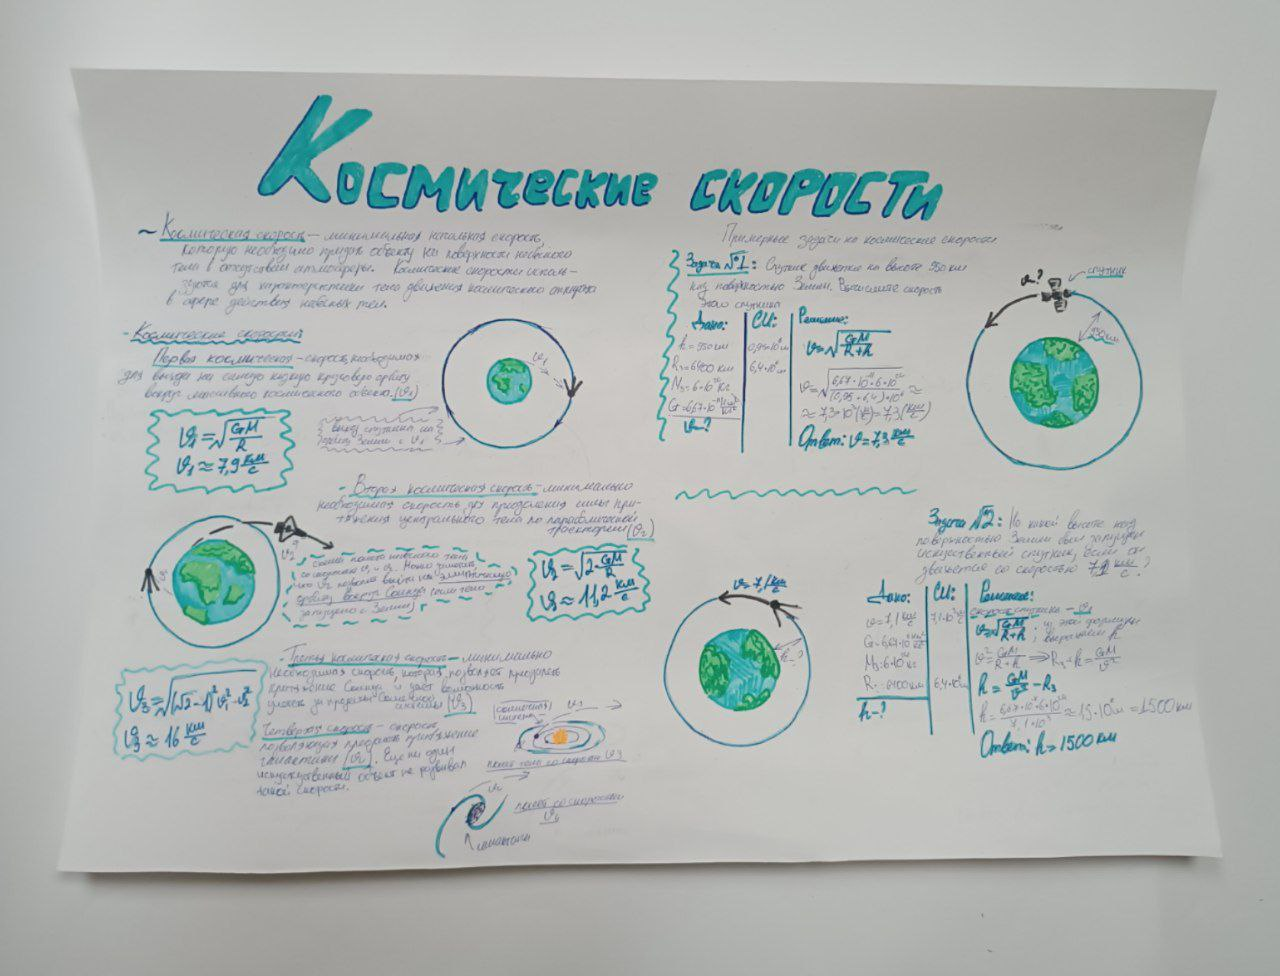 Космические скорости
~ Космическая скорость – минимальная начальная скорость,
которую необходимо придать объекту на поверхности небесного
тела в отсутствии атмосферы. Космические скорости исполь-
зуются для характеристики типа движения космического аппарата
в сфере действия небесных тел.
- Космические скоростий
Первая космическая – скорость, необходимая
для выхода на самую низкую круговую орбиту
вокруг массивного космического объекта (υ₁)
υ₁ = √GM/R
υ₁ ≈ 7,9 км/с
выход спутника на
орбиту Земли с υ₁
υ₁
- Вторая космическая скорость – минимально
необходимая скорость для преодоления силы при-
тяжения центрального тела по параболической
траектории (υ₂)
υ₂ = √2·GM/R
υ₂ ≈ 11,2 км/с
υ₂
υ₁
схема полета небесного тела
со скоростью υ₁ и υ₂. Можно заметить,
что υ₂ позволяет выйти на эллиптическую
орбиту вокруг Солнца (если тело
запущено с Земли)
- Третья космическая скорость – минимально
необходимая скорость, которая позволяет преодолеть
притяжение Солнца и даёт возможность
улететь за пределы Солнечной
системы (υ₃)
υ₃ = √(√2-1)²υ₁²+υ₂²
υ₃ ≈ 16 км/с
солнечная
система
υ₃
полет тела со скоростью υ₃
Четвертая скорость – скорость,
позволяющая преодолеть притяжение
галактики (υ₄). Еще ни один
искусственный объект не развивал
такой скорости.
υ₄
полет со скоростью
υ₄
галактика
Примерные задачи на космические скорости
Задача №1: Спутник движется на высоте 950 км
над поверхностью Земли. Вычислите скорость
этого спутника
Дано: СИ: Решение:
h = 950 км 0,95·10⁶ м υ = √GM/R+h
R₃ = 6400 км 6,4·10⁶ м
M₃ = 6·10²⁴ кг υ = √6,67·10⁻¹¹·6·10²⁴/(0,95+6,4)·10⁶ ≈
G = 6,67·10⁻¹¹ Н·м²/кг² ≈ 7,3·10³ (м/с) = 7,3 (км/с)
υ – ? Ответ: υ = 7,3 км/с
υ? спутник
950 км
Задача №2: На какой высоте над
поверхностью Земли был запущен
искусственный спутник, если он
движется со скоростью 7,1 км/с?
υ = 7,1 км/с
h-?
Дано: СИ: Решение:
скорость спутника – υ₁
υ = 7,1 км/с 7,1·10³ м/с υ = √GM/R+h ; из этой формулы
выражаем h
G = 6,67·10⁻¹¹ Н·м²/кг² υ² = GM/R+h ⇒ R₃ + h = GM/υ²
M₃ = 6·10²⁴ кг
R₃ = 6400 км 6,4·10⁶ м h = GM/υ² – R₃
h – ? ≈ 15·10⁵ м = 1500 км
Ответ: h = 1500 км